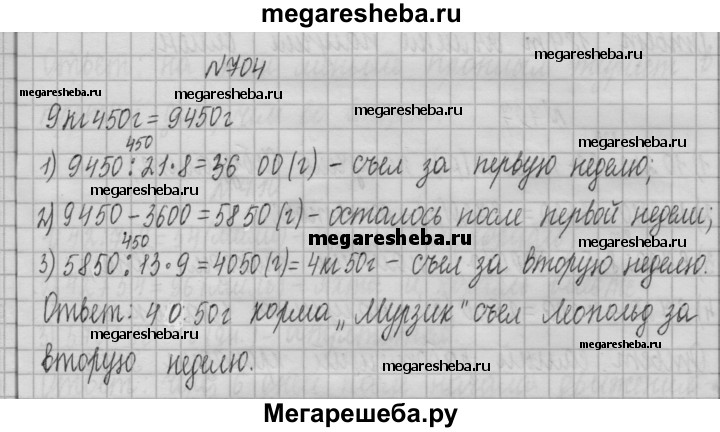 megaresheba.ru
№704
megaresheba.ru
megaresheba.ru
megaresheba.ru
9кг450г = 9450г
megaresheba.ru
450
1) 9450 : 21 · 8 = 36 00 (г) - съел за первую неделю;
megaresheba.ru
megaresheba.ru
2) 9450 - 3600 = 5850 (г) - осталось после первой недели;
megaresheba.ru
450
3) 5850 : 13 · 9 = 4050 (г) = 4кг50г - съел за вторую неделю.
megaresheba.ru
Ответ: 40 50г корма "Мурзик" съел Леопольд за
megaresheba.ru
megaresheba.ru
вторую неделю.
megaresheba.ru
Мегарешеба.ру